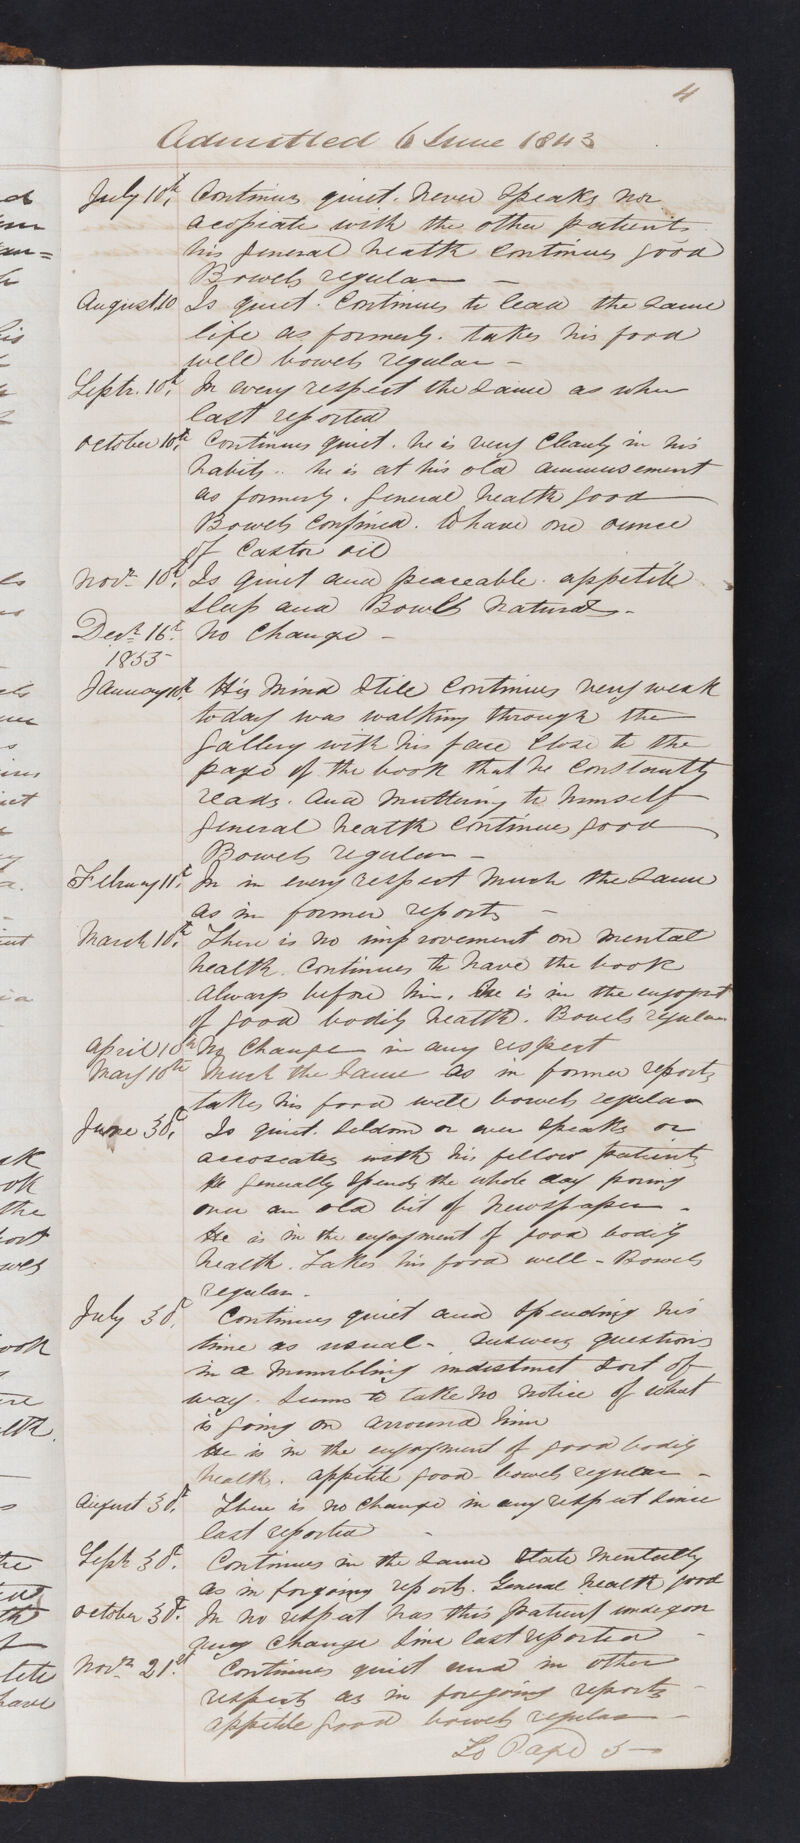 4
Admitted 6 June 1843
July 10th Continues quiet. never speaks nor
acosiate with the other patients
his general health continues good
Bowels regular —
August 10 Is quiet. Continues to lead the same
life as formerly. takes his food
well bowels regular —
Septr. 10th In every respect the same as when
last reported
October 10th Continues quiet. he is very cleanly in his
habits.. he is at his old ammusement
as formerly. general health good
Bowels confined. to have one ounce
of Castor oil
Novr 10th Is quiet and peaceable. appetite
Sleep and Bowels natural -
Decr 16th No Change -
1853
January 10th His mind Still continues very weak
today was walking through the
gallery with his face close to the
page of the book that he constantly
reads. And muttering to himself
general health continues good
Bowels regular —
February 11th In in every respect much the same
as in former reports —
March 10th There is no improvement on mental
health. Continues to have the book
always before him. He is in the enjoyt
of good bodily health. Bowels regular
April 10th No change in any respect
May 10th Much the same as in former reports
takes his food well bowels regular
June 30th Is quiet. Seldom or ever speaks or
accosiates with his fellow patients
He generally spends the whole day poring
over an old bit of Newspaper -
He is in the enjoyment of good bodily
health. Takes his food well - Bowels
regular -
July 30th Continues quiet and spending his
time as usual - answers questions
in a mumbling indistinct sort of
way. Seems to take no notice of what
is going on arround him
He is in the enjoyment of good bodily
health. appetite good - bowels regular -
August 30th There is no change in any respect since
last reported -
Septr 30th Continues in the same state mentally
as in forgoing reports. General health good
October 30th In no respect has this patient undergon
any change sinc last reported -
Novr 21st Continues quiet and in other
respects as in foregoing reports -
appetite good bowels regular -
To Page 5 —